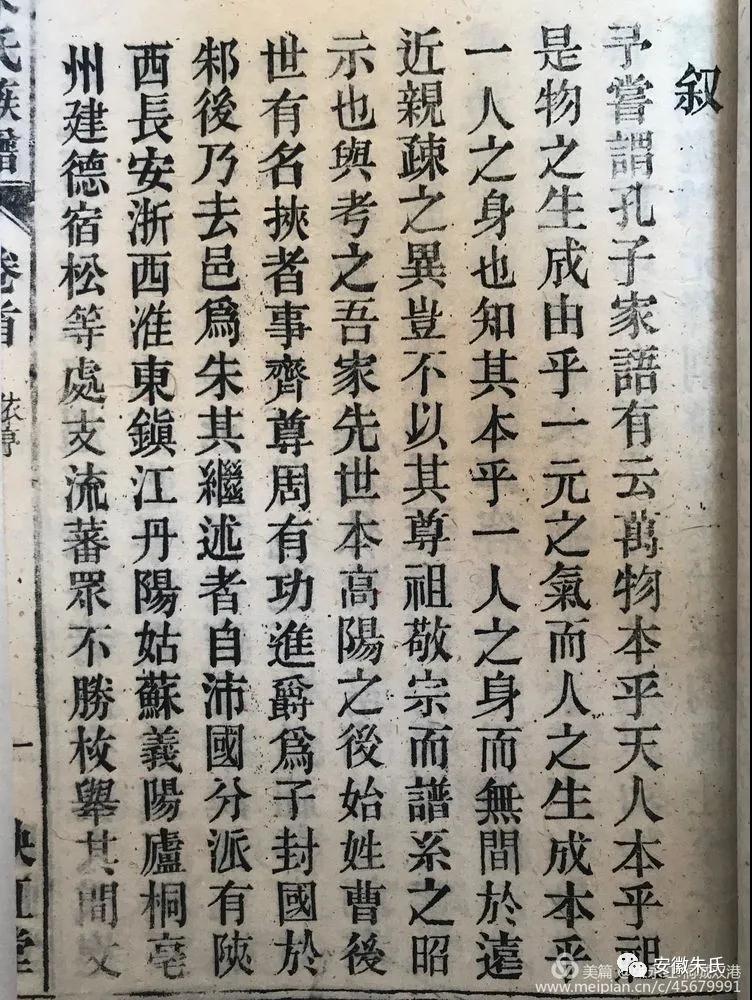 叙
予嘗謂孔子家語有云萬物本乎天人本乎祖
是物之生成由乎一元之氣而人之生成本乎
一人之身也知其本乎一人之身而無間於遠
近親疎之異豈不以其尊祖敬宗而譜系之昭
示也與考之吾家先世本高陽之後始姓曹後
世有名挾者事齊尊周有功進爵爲子封國於
邾後乃去邑爲朱其繼述者自沛國分派有陝
西長安浙西淮東鎮江丹陽姑蘇義陽廬桐亳
州建德宿松等處支流蕃眾不勝枚舉其間文
氏族譜
卷首
一
安徽朱氏
美篇
www.meipian.cn/c/45679991